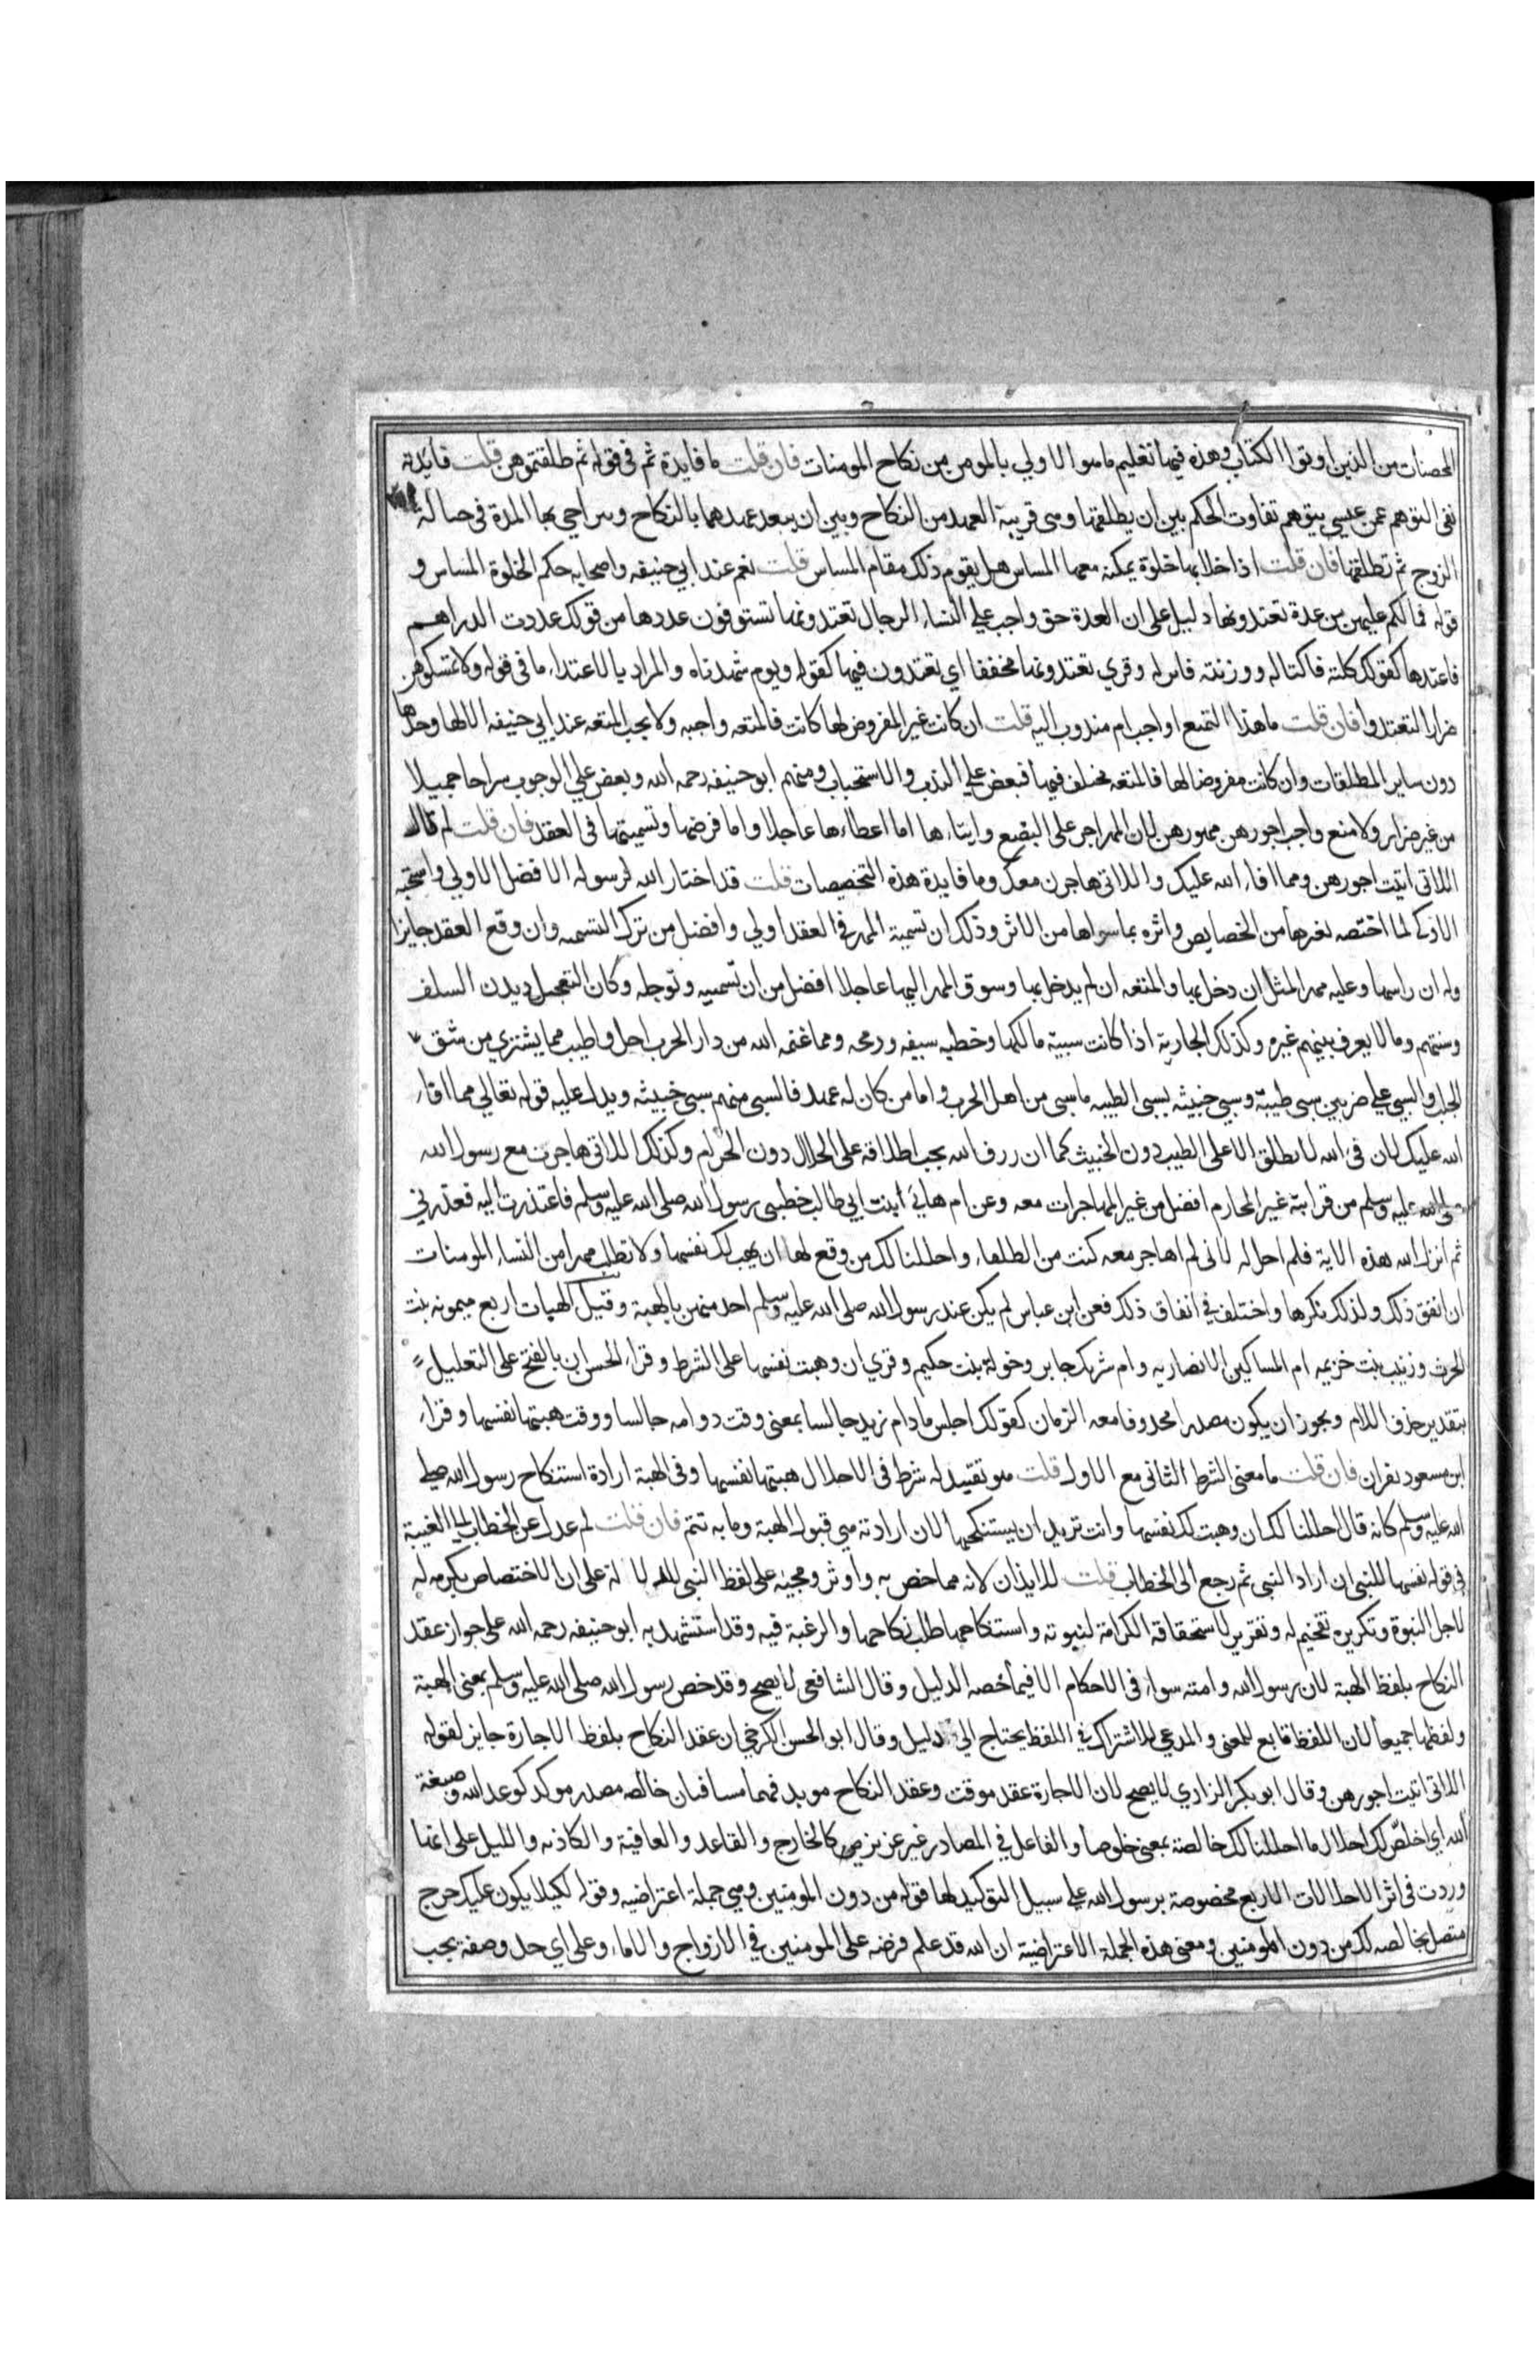 المحصنات من الذين اوتوا الكتاب وهذه فيها تعليم ما هو الاولي بالمومن من نكاح المومنات فان قلت ما فايدة ثم في قوله ثم طلقتموهن قلت فايدته
نفي التوهم عمن عسي يتوهم تفاوت الحكم بين ان يطلقها وهي قريبة العهد من النكاح وبين ان يبعد عهدهما بالنكاح ويتراخي بها المدة في حبالة
الزوج ثم تطلقها فان قلت اذا خلا بها خلوة يمكنه معها المساس هل يقوم ذلك مقام المساس قلت نعم عند ابي حنيفه واصحابه حكم الخلوة المساس و
قوله فما لكم عليهن من عدة تعتدونها دليل على ان العدة حق واجب علي النساء الرجال تعتدونها تستوفون عددها من قولك عددت الدراهم
فاعتدها كقولك كلته فاكتاله ووزنته فاتزنه وقري تعتدونها مخففا اي تعتدون فيها كقوله ويوم شهدناه والمراد بالاعتداء ما في قوله ولا تمسكوهن
ضرارا لتعتدوا فان قلت ما هذا التمتع اواجب ام مندوب اليه قلت ان كانت غير المفروض لها كانت فالمتعه واجبه ولا يجب المتعه عند ابي حنيفه الا لها وحدها
دون ساير المطلقات وان كانت مفروضا لها فالمتعه مختلف فيها فبعض علي الندب والاستحباب ومنهم ابو حنيفه رحمه الله وبعض علي الوجوب سراحا جميلا
من غير ضرار ولا منع واجب اجورهن مهورهن لان المهر اجر على البضع وايتاءها اما اعطاءها عاجلا واما فرضها وتسميتها في العقد فان قلت لم قال
اللاتي اتيت اجورهن ومما افاء الله عليك واللاتي هاجرن معك وما فايدة هذه التخصيصات قلت قد اختار الله لرسوله الافضل الاولي واستحبه
الازكي كما اختصه بغيرها من الخصايص واثره بما سواها من الاثر وذلك ان تسمية المهر في العقد اولي وافضل من ترك التسميه وان وقع العقد جايزا
وله ان يماسها وعليه مهر المثل ان دخل بها والمتعه ان لم يدخل بها وسوق المهر اليها عاجلا افضل من ان تسميه وتوجله وكان التعجيل ديدن السلف
وسنتهم وما لا يعرف بينهم غيره وكذلك الجارية اذا كانت سبية مالكها وخطبه سيفه ورمحه ومما غنمه الله من دار الحرب احل واطيب مما يشتري من شق
الجلب والسبي علي ضربين سبي طيبة وسبي خبيثه فسبي الطيبه ما سبي من اهل الحرب واما من كان له عهد فالسبي منهم سبي خبيثه ويدل عليه قوله تعالي مما افاء
الله عليك لان فيء الله لا يطلق الا على الطيب دون الخبيث كما ان رزق الله يجب اطلاقه على الحلال دون الحرام وكذلك اللاتي هاجرن مع رسول الله
صلى الله عليه وسلم من قرابته غير المحارم افضل من غير المهاجرات معه وعن ام هانيء بنت ابي طالب خطبني رسول الله صلى الله عليه وسلم فاعتذرت اليه فعذرني
ثم انزل الله هذه الاية فلم احل له لاني لم اهاجر معه كنت من الطلقاء واحللنا لك من وقع لها ان يهب لك نفسها ولا تطلب مهرا من النساء المومنات
ان اتفق ذلك ولذلك نكرها واختلف في اتفاق ذلك فعن ابن عباس لم يكن عند رسول الله صلى الله عليه وسلم احد منهن بالهبة وقيل الموهبات اربع ميمونه بنت
الحرث وزينب بنت خزيمه ام المساكين الانصاريه وام شريك جابر وخولة بنت حكيم وقري ان وهبت نفسها على الشرط وقراء الحسن ان بالفتح على التعليل
بتقدير حذف اللام ويجوز ان يكون مصدرا محذوفا معه الزمان كقولك اجلس ما دام زيد جالسا بمعنى وقت دوامه جالسا ووقت هبتها نفسها وقراء
ابن مسعود بغير ان فان قلت ما معنى الشرط الثاني مع الاول قلت هو تقييد له شرط في الاحلال هبتها نفسها وفي الهبة ارادة استنكاح رسول الله صلى
الله عليه وسلم كانه قال احللنا لك ان وهبت لك نفسها وانت تريد ان يستنكحها لان ارادته هي قبول الهبة وما به تتم فان قلت لم عدل عن الخطاب الى الغيبة
في قوله نفسها للنبي ان اراد النبي ثم رجع الى الخطاب قلت للايذان لانه مما خص به واوثر ومجيئه على لفظ النبي للدلالة على ان الاختصاص تكرمه له
لاجل النبوة وتكريره تفخيم له وتقرير لاستحقاقه الكرامة لنبوته واستنكاحها طلب نكاحها والرغبة فيه وقد استشهد به ابو حنيفه رحمه الله على جواز عقد
النكاح بلفظ الهبة لان رسول الله وامته سواء في الاحكام الا فيما خصه الدليل وقال الشافعي لا يصح وقد خص رسول الله صلى الله عليه وسلم بمعنى الهبة
ولفظها جميعا لان اللفظ تابع للمعنى والمدعي للاشتراك في اللفظ يحتاج الي دليل وقال ابو الحسن الكرخي ان عقد النكاح بلفظ الاجارة جايز لقوله
اللاتي اتيت اجورهن وقال ابو بكر الرازي لا يصح لان الاجارة عقد موقت وعقد النكاح موبد فهما متنافيان خالصه مصدر موكد كوعد الله وصبغة
الله اي اخلص لك احلال ما احللنا لك خالصة بمعنى خلوصا والفاعل في المصادر غير عزيز كالخارج والقاعد والعافية والكاذبه والدليل على انها
وردت في اثر الاحلالات الاربع مخصوصة برسول الله علي سبيل التوكيد لها قوله من دون المومنين وهي جملة اعتراضيه وقوله لكيلا يكون عليك حرج
متصل بخالصه لك من دون المومنين ومعنى هذه الجملة الاعتراضية ان الله قد علم فرضه على المومنين في الازواج والاماء وعلى اي حد وصفة يجب